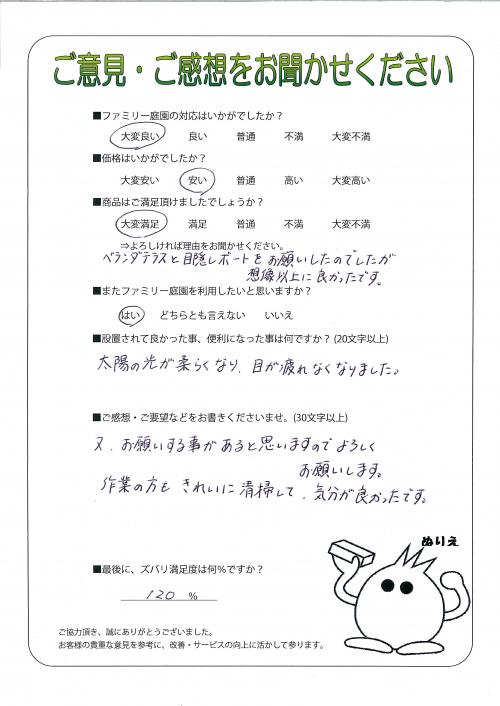 ご意見・ご感想をお聞かせください
■ファミリー庭園の対応はいかがでしたか？
大変良い 良い 普通 不満 大変不満
■価格はいかがでしたか？
大変安い 安い 普通 高い 大変高い
■商品はご満足頂けましたでしょうか？
大変満足 満足 普通 不満 大変不満
⇒よろしければ理由をお聞かせください。
ベランダテラスと目隠しボートをお願いしたのでしたが
想像以上に良かったです。
■またファミリー庭園を利用したいと思いますか？
はい どちらとも言えない いいえ
■設置されて良かった事、便利になった事は何ですか？(20文字以上)
太陽の光が柔らくなり、目が疲れなくなりました。
■ご感想・ご要望などをお書きくださいませ。(30文字以上)
又、お願いする事があると思いますのでよろしく
お願いします。
作業の方も きれいに清掃して、気分が良かったです。
ぬりえ
■最後に、ズバリ満足度は何％ですか？
120 ％
ご協力頂き、誠にありがとうございました。
お客様の貴重な意見を参考に、改善・サービスの向上に活かして参ります。